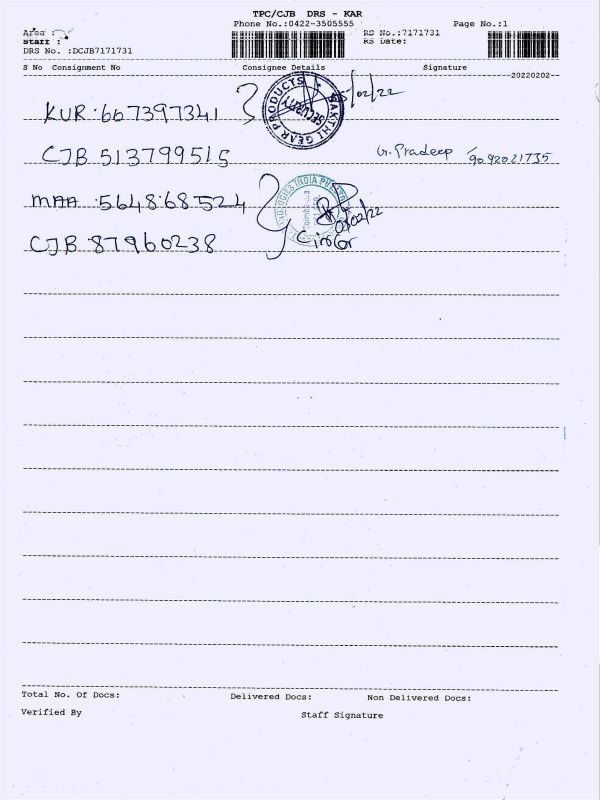 TPC/CJB DRS - KAR
Phone No.:0422-3505555 Page No.:1
Area :
Staff : RS No.:7171731
DRS No. :DCJB7171731 RS Date:
S No Consignment No Consignee Details Signature
20220202
KUR:667397341 SAKTHI GEAR PRODUCTS SECURITY /02/22
CJB 513799515 G.Pradeep 9092021735
MAA 564868524 INDIA 02/02/22
CJB 87960238
Total No. Of Docs: Delivered Docs: Non Delivered Docs:
Verified By Staff Signature